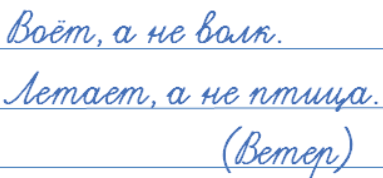 Воёт, а не волк.
Летает, а не птица.
(Ветер)